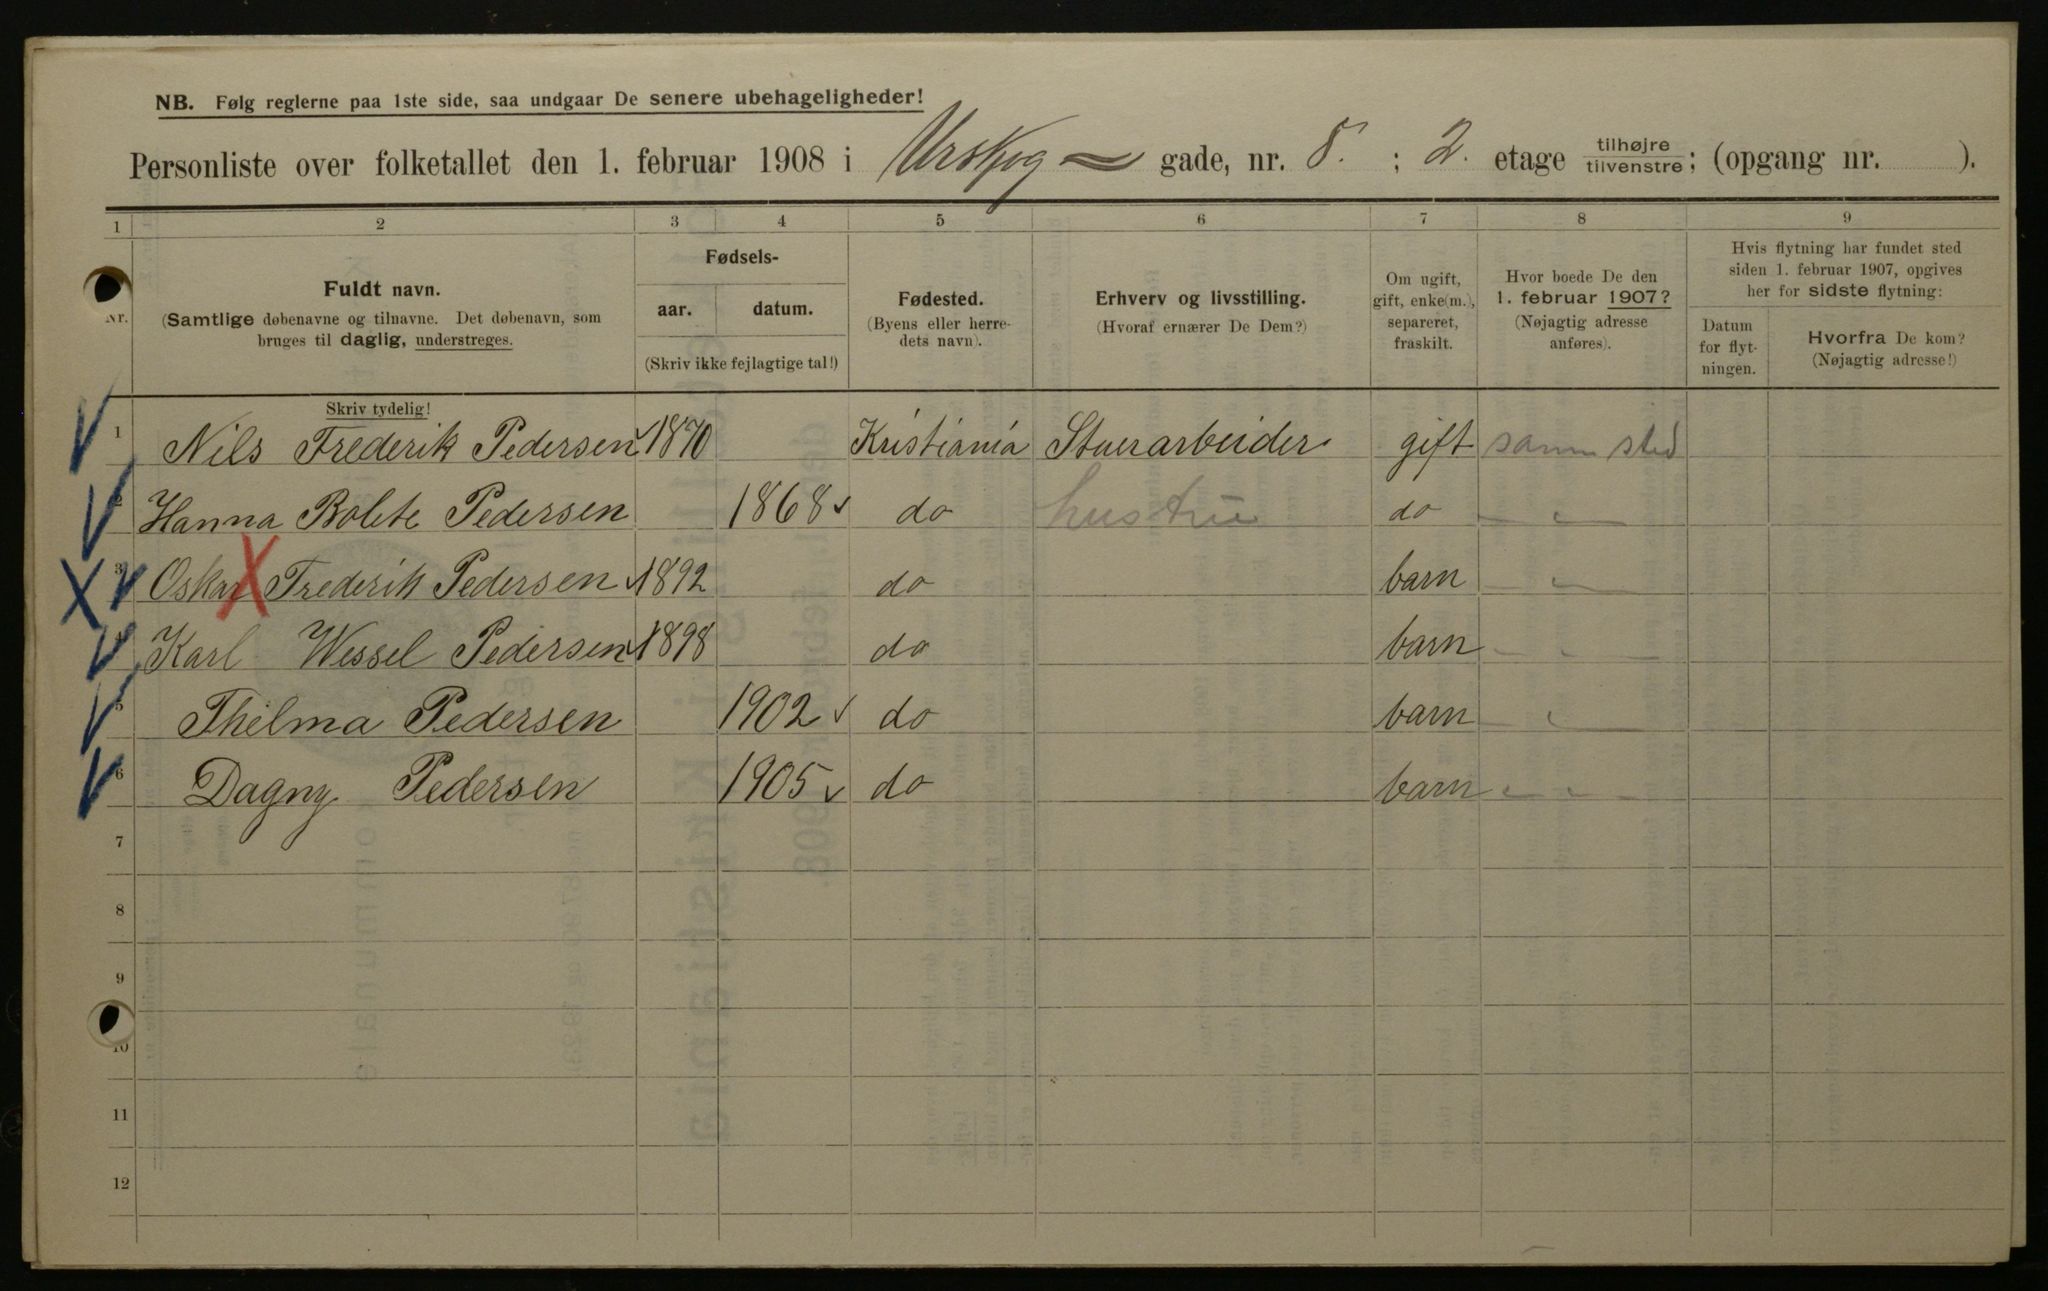 NB. Følg reglerne paa 1ste side, saa undgaar De senere ubehageligheder!
Personliste over folketallet den 1. februar 1908 i Urskog gade, nr. 8. ; 2. etage tilhøjre tilvenstre; (opgang nr. ).
1 2 3 4 5 6 7 8 9
Nr.
Fuldt navn.
(Samtlige døbenavne og tilnavne. Det døbenavn, som
bruges til daglig, understreges.
Skriv tydelig!
Fødsels-
aar. datum.
(Skriv ikke fejlagtige tal!)
Fødested.
(Byens eller herre-
dets navn).
Erhverv og livsstilling.
(Hvoraf ernærer De Dem?)
Om ugift,
gift, enke(m.),
separeret,
fraskilt.
Hvor boede De den
1. februar 1907?
(Nøjagtig adresse
anføres).
Hvis flytning har fundet sted
siden 1. februar 1907, opgives
her for sidste flytning:
Datum
for flyt-
ningen.
Hvorfra De kom?
(Nøjagtig adresse!)
1 Nils Frederik Pedersen 1870 Kristiania Stuerarbeider gift samme sted
2 Hanna Bolete Pedersen 1868 do hustru do — " —
3 Oskar Frederik Pedersen 1892 do barn — " —
4 Karl Wessel Pedersen 1898 do barn — " —
5 Thelma Pedersen 1902 do barn — " —
6 Dagny Pedersen 1905 do barn — " —
7
8
9
10
11
12